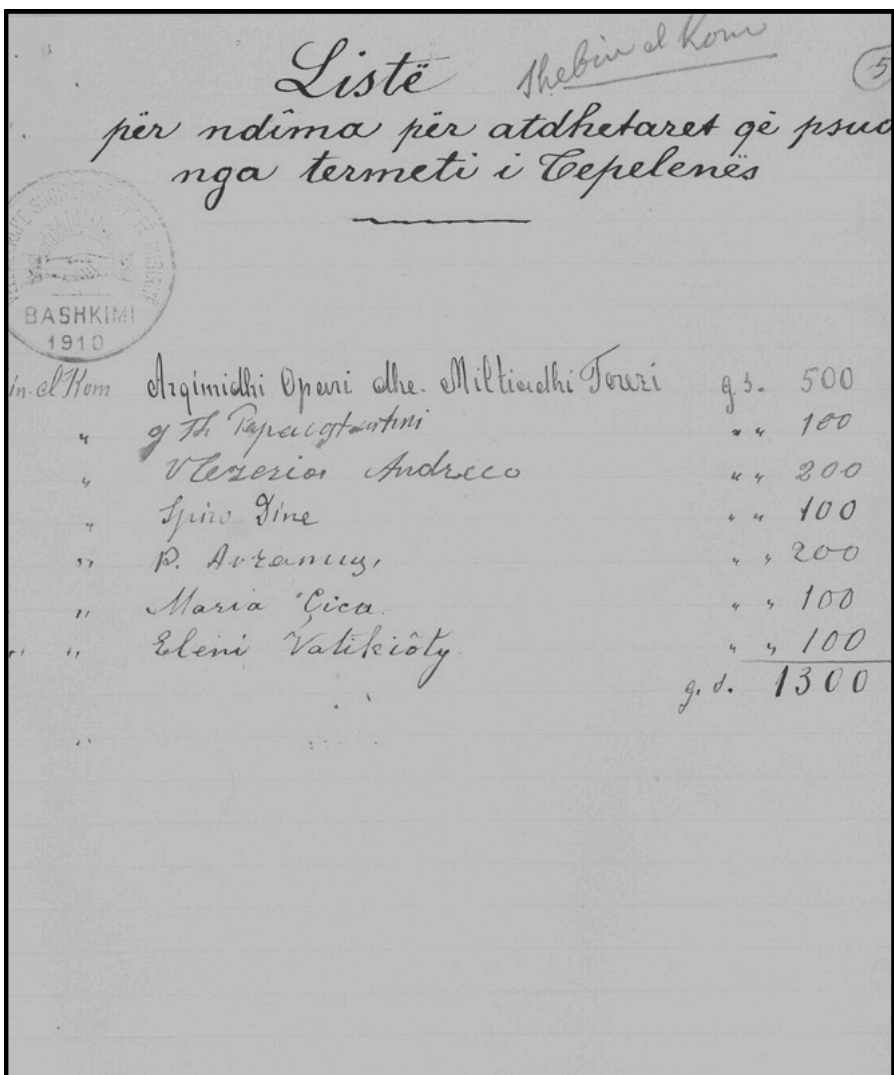 Shebin el Kom
5
Listë
për ndima për atdhetaret që psua
nga termeti i Tepelenës
BASHKIMI
1910
in. el Kom Argimidhi Opari dhe. Miltiadhi Terezi g s. 500
" g Th " " 100
" Vlezeria Andreco " " 200
" Spiro Dine " " 100
" P. Avramuz, " " 200
" Maria Çica " " 100
" " Eleni Vatikiôty " " 100
g. s. 1300